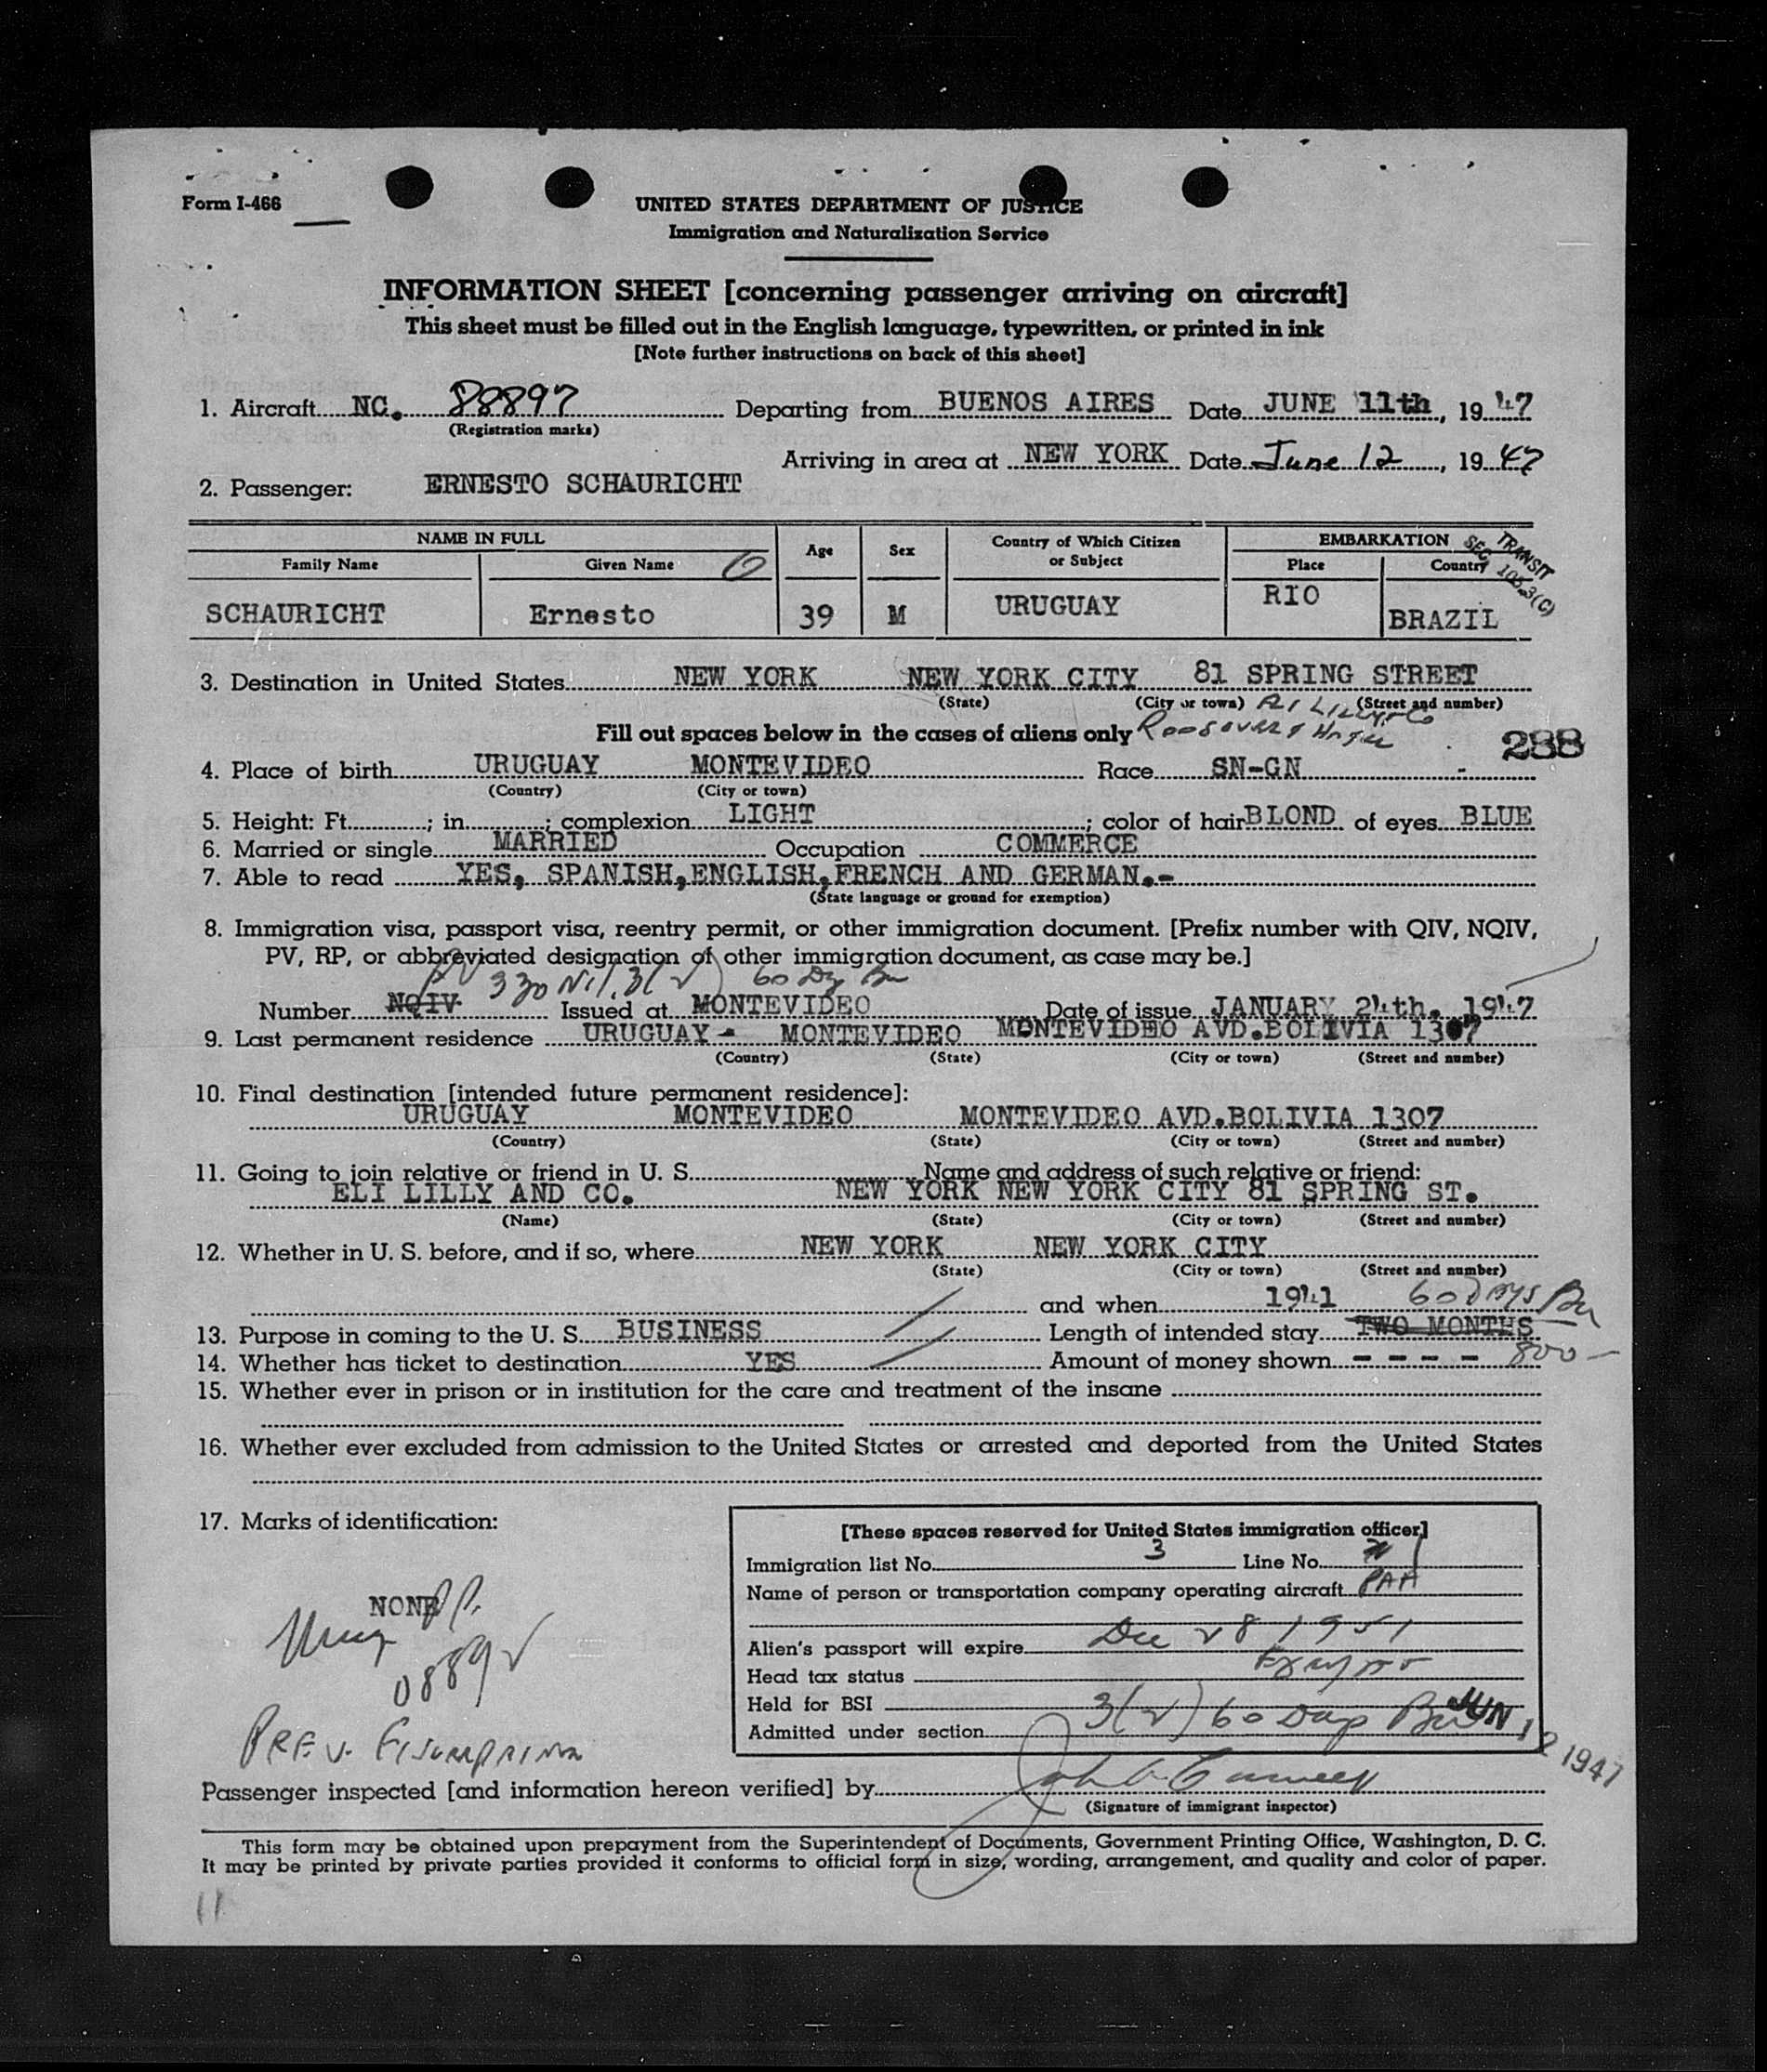 Form I-466
UNITED STATES DEPARTMENT OF JUSTICE
Immigration and Naturalization Service
INFORMATION SHEET [concerning passenger arriving on aircraft]
This sheet must be filled out in the English language, typewritten, or printed in ink
[Note further instructions on back of this sheet]
1. Aircraft NC. 88897 Departing from BUENOS AIRES Date JUNE 11th, 1947
(Registration marks)
Arriving in area at NEW YORK Date June 12, 1947
2. Passenger: ERNESTO SCHAURICHT
NAME IN FULL Age Sex Country of Which Citizen or Subject EMBARKATION
Family Name Given Name Place Country
TRANSIT
SEC. 105.3(C)
SCHAURICHT Ernesto 39 M URUGUAY RIO BRAZIL
3. Destination in United States NEW YORK NEW YORK CITY 81 SPRING STREET
(State) (City or town) (Street and number)
Fill out spaces below in the cases of aliens only Roosevelt Hotel
288
4. Place of birth URUGUAY MONTEVIDEO Race SN-GN
(Country) (City or town)
5. Height: Ft. ; in. ; complexion LIGHT ; color of hair BLOND of eyes BLUE
6. Married or single MARRIED Occupation COMMERCE
7. Able to read YES, SPANISH,ENGLISH,FRENCH AND GERMAN.-
(State language or ground for exemption)
8. Immigration visa, passport visa, reentry permit, or other immigration document. [Prefix number with QIV, NQIV,
PV, RP, or abbreviated designation of other immigration document, as case may be.]
PV 330 3(2) 60 Dy Bu
Number NQIV Issued at MONTEVIDEO Date of issue JANUARY 24th. 1947
9. Last permanent residence URUGUAY - MONTEVIDEO MONTEVIDEO AVD.BOLIVIA 1307
(Country) (State) (City or town) (Street and number)
10. Final destination [intended future permanent residence]:
URUGUAY MONTEVIDEO MONTEVIDEO AVD.BOLIVIA 1307
(Country) (State) (City or town) (Street and number)
11. Going to join relative or friend in U. S. Name and address of such relative or friend:
ELI LILLY AND CO. NEW YORK NEW YORK CITY 81 SPRING ST.
(Name) (State) (City or town) (Street and number)
12. Whether in U. S. before, and if so, where NEW YORK NEW YORK CITY
(State) (City or town) (Street and number)
and when 1941 60 Days Bu
13. Purpose in coming to the U. S. BUSINESS Length of intended stay TWO MONTHS
14. Whether has ticket to destination YES Amount of money shown - - - - 800 -
15. Whether ever in prison or in institution for the care and treatment of the insane
16. Whether ever excluded from admission to the United States or arrested and deported from the United States
17. Marks of identification:
NONE
[These spaces reserved for United States immigration officer]
Immigration list No. 3 Line No.
Name of person or transportation company operating aircraft PAA
Alien's passport will expire Dec 28 1951
Head tax status Exempt
Held for BSI
Admitted under section 3(2) 60 Days Bus
JUN 12 1947
Passenger inspected [and information hereon verified] by
(Signature of immigrant inspector)
This form may be obtained upon prepayment from the Superintendent of Documents, Government Printing Office, Washington, D. C.
It may be printed by private parties provided it conforms to official form in size, wording, arrangement, and quality and color of paper.
11